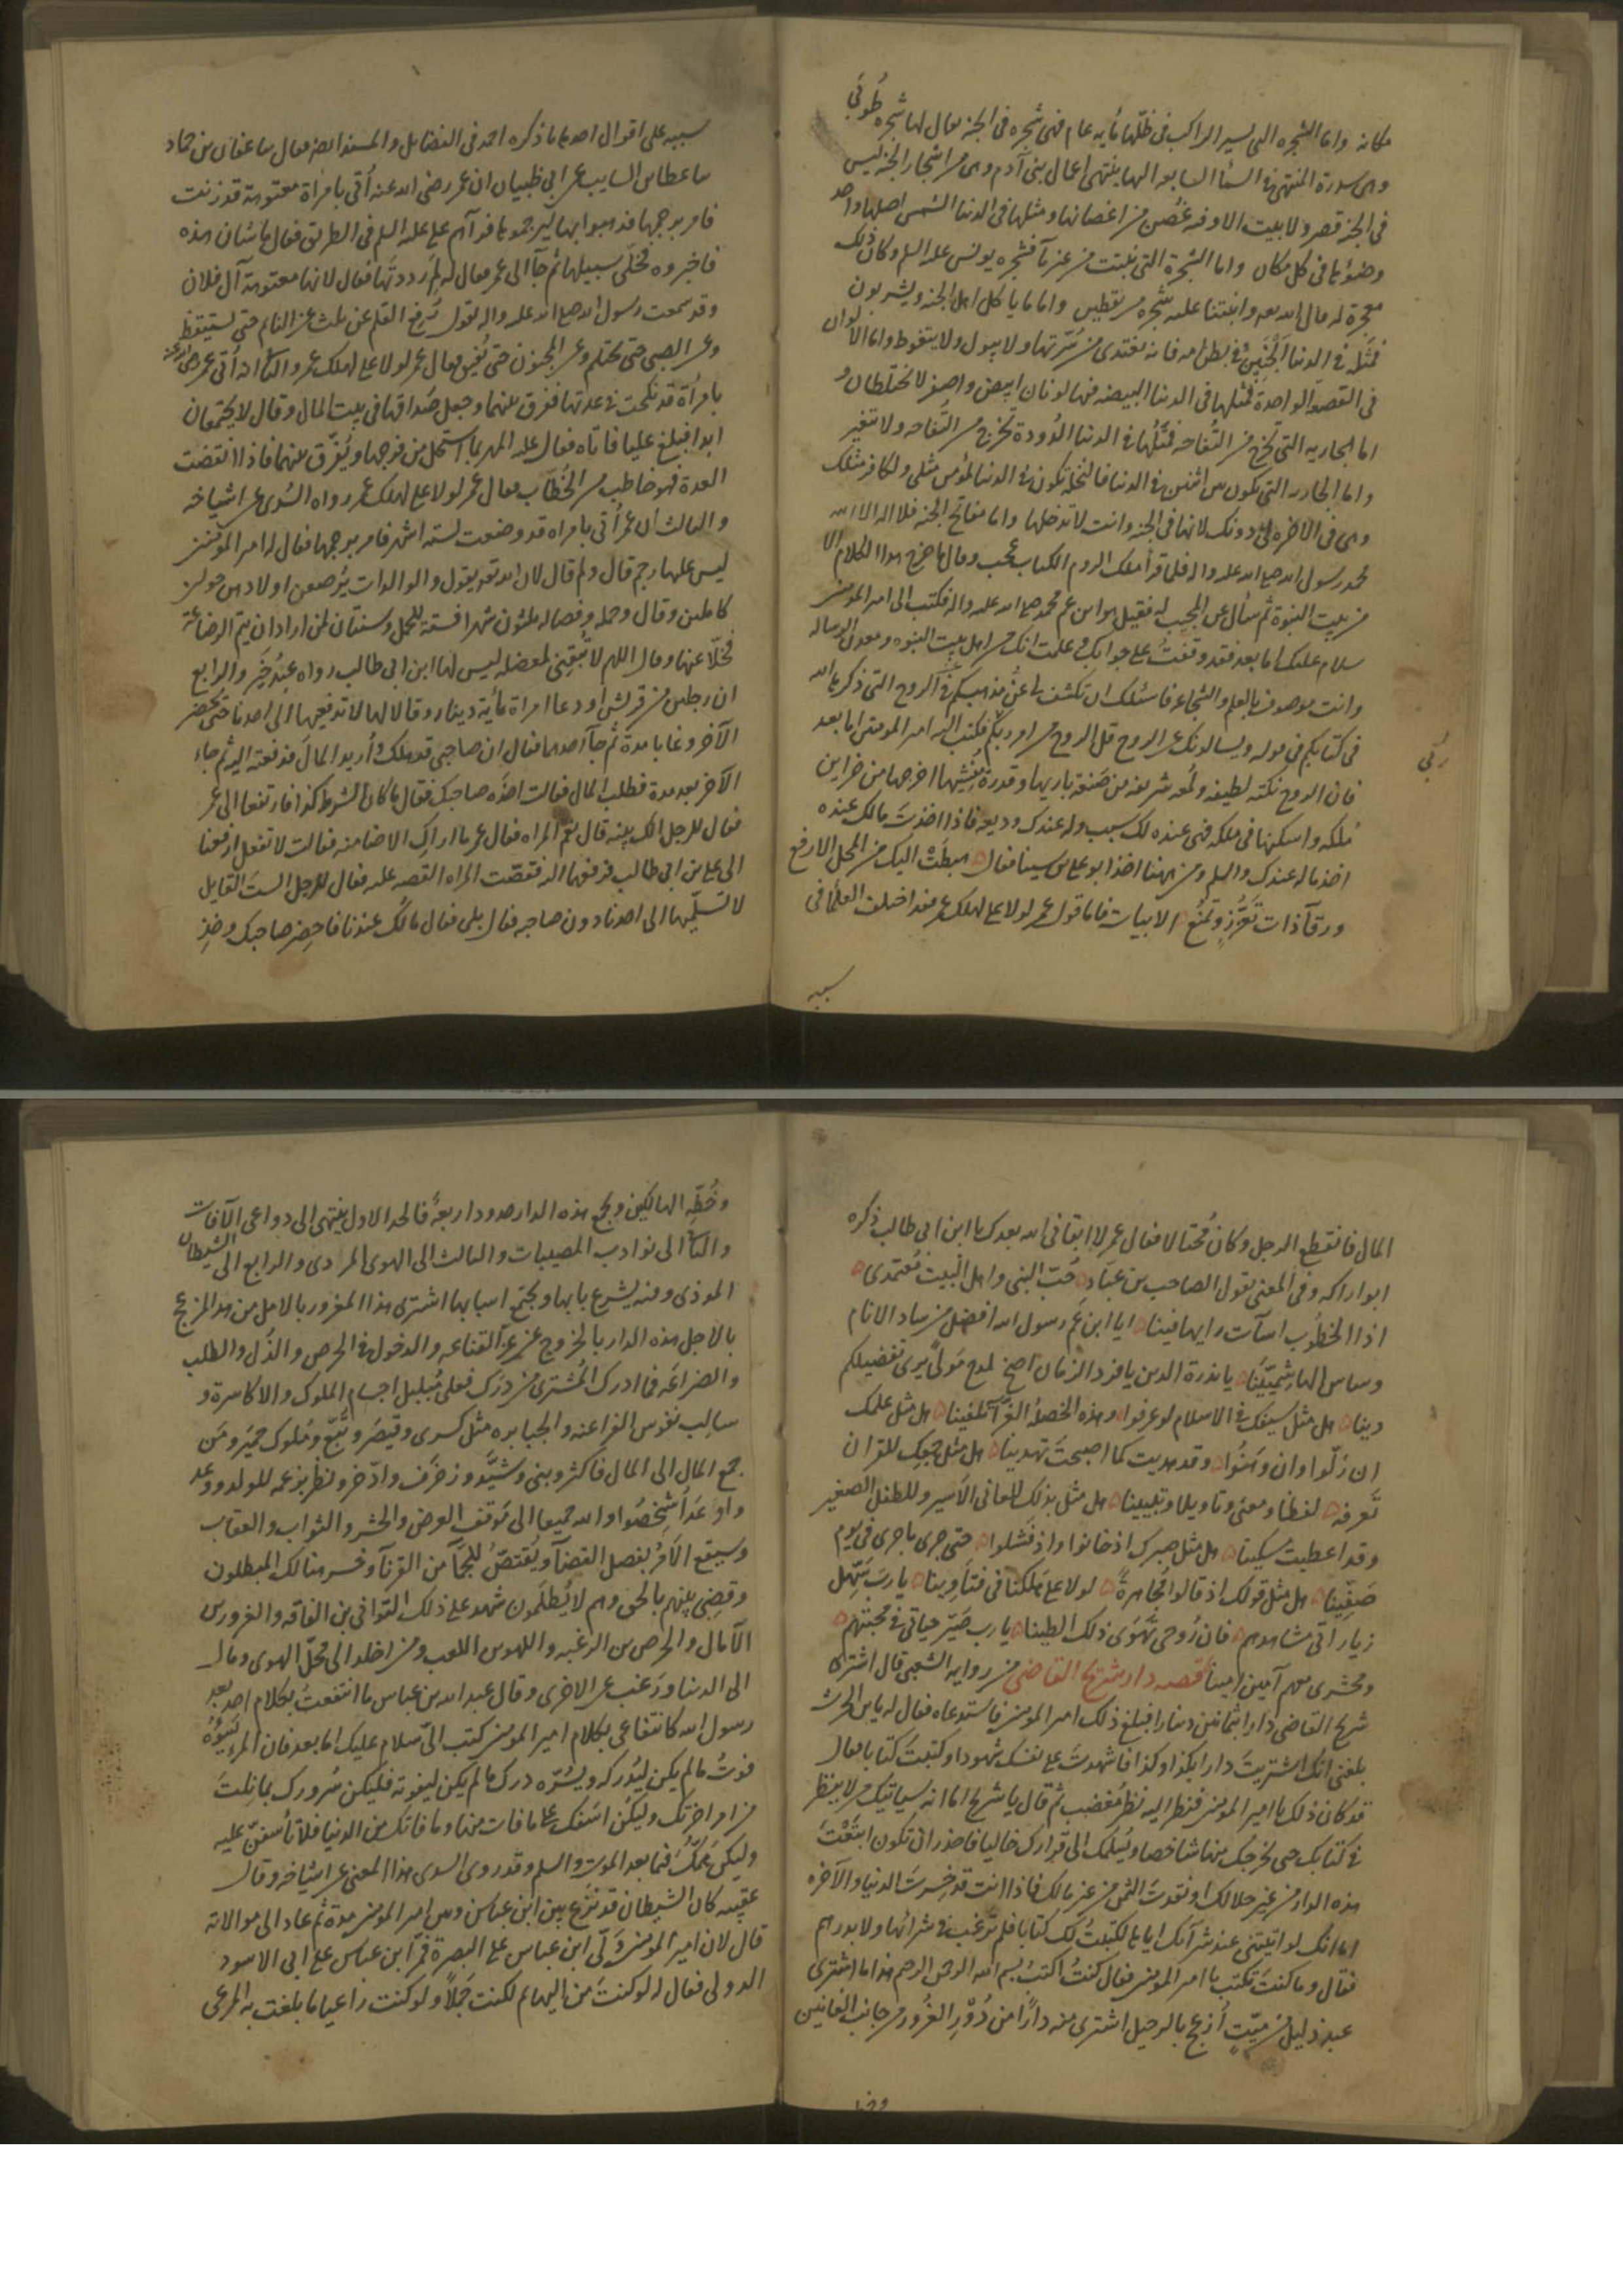 مكانه واما الشجره التى يسير الراكب فى ظلها مأيه عام فهى شجره فى الجنه يقال لها شجره طوبى
وهى سدرة المنتهى فى السمأ السابعه اليها ينتهى اعمال بنى آدم وهى من اشجار الجنه ليس
فى الجنه قصر ولا بيت الا وفيه غصن من اغصانها ومثلها فى الدنيا الشمس اصلها واحد
وضوئها فى كل مكان واما الشجرة التى نبتت من غير مآ فشجره يونس عليه السلم وكان ذلك
معجزة له قال الله تعه وانبتنا عليه شجره من يقطين واما ما يأكل اهل الجنه ويشربون
فمثله فى الدنيا الجنين فى بطن امه فانه يغتدى من سرتها ولا يبول ولا يتغوط واما الالوان
فى القصعه الواحدة فمثلها فى الدنيا البيضه فيها لونان ابيض واصفر لا يختلطان و
اما الجاريه التى تخرج من التفاحه فمثلها فى الدنيا الدودة تخرج من التفاحه ولا تتغير
واما الجاريه التى تكون بين اثنين فى الدنيا فالنخله تكون فى الدنيا لمؤمن مثلى ولكافر مثلك
وهى فى الآخره لى دونك لانها فى الجنه وانت لا تدخلها واما مفاتح الجنه فلا اله الا الله
محمد رسول الله صلى الله عليه واله فلما قرأ ملك الروم الكتاب عجب وقال ما خرج هذا الكلام الا
من بيت النبوة ثم سأل عن المجيب له فقيل هو ابن عم محمد صلى الله عليه واله فكتب الى امير المؤمنين
سلام عليك اما بعد فقد وقفت على جوابك وعلمت انك من اهل بيت النبوه ومعدن الرساله
وانت موصوف بالعلم والشجاعه فاسئلك ان تكشف لى عن مذهبكم فى الروح التى ذكرها الله
فى كتابكم فى قوله ويسالونك عن الروح قل الروح من امر ربكم فكتب اليه امير المؤمنين اما بعد
ربى
فان الروح نكته لطيفه ولمعه شريفه من صنعة باريها وقدرة منشيها اخرجها من خزاين
ملكه واسكنها فى ملكه فهى عنده لك سبب وله عندك وديعه فاذا اخذت مالك عنده
اخذ ماله عندك والسلم ومن ههنا اخذ ابو على بن سينا فقال هبطت اليك من المحل الارفع
ورقآ ذات تعزز وتمنع الابيات فاما قول عمر لولا على لهلك عمر فقد اختلف العلمأ فى
سببه
سببه على اقوال احدها ما ذكره احمد فى الفضايل والمسند ايضا فقال ثنا عفان بن حماد
ثنا عطا بن السايب عن ابى ظبيان ان عمر رضى الله عنه أتى بامراة معتوهة قد زنت
فامر برجمها فذهبوا بها ليرجموها فرآهم على عليه السلم فى الطريق فقال ما شان هذه
فاخبروه فخلى سبيلها ثم جآ الى عمر فقال له لم رددتها فقال لانها معتوهة آل فلان
وقد سمعت رسول الله صلى الله عليه واله يقول رفع القلم عن ثلث عن النائم حتى يستيقظ
وعن الصبى حتى يحتلم وعن المجنون حتى يفيق فقال عمر لولا على لهلك عمر والثانى انه أتى عمر رضى الله عنه
بامرأة قد نكحت فى عدتها ففرق بينهما وجعل صداقها فى بيت المال وقال لا يجتمعان
ابدا فبلغ عليا فاتاه فقال عليه المهر بما استحل من فرجها ويفرق بينهما فاذا انقضت
العدة فهو خاطب من الخطاب فقال عمر لولا على لهلك عمر رواه السدى عن اشياخه
والثالث ان عمر أتى بامراه قد وضعت لسته اشهر فامر برجمها فقال له امير المؤمنين
ليس عليها رجم قال ولم قال لان الله تعه يقول والوالدات يرضعن اولادهن حولين
كاملين وقال وحمله وفصاله ثلثون شهرا فستة للحمل وسنتان لمن اراد ان يتم الرضاعة
فخلا عنها وقال اللهم لا تبقنى لمعضله ليس لها ابن ابى طالب رواه والرابع
ان رجلين من قريش اودعا امراة مأية دينار وقالا لها لا تدفعيها الى احدنا حتى يحضر
الآخر وغابا مدة ثم جآ احدهما فقال ان صاحبى قد هلك واريد المال فدفعته اليه ثم جاء
الآخر بعد مدة فطلب المال فقالت اخذه صاحبك فقال ما كان الشرط كذا فارتفعا الى عمر
فقال للرجل الك بينه قال نعم المراه فقال عمر ما اراك الا ضامنه فقالت لا تفعل ارفعنا
الى على بن ابى طالب فرفعهما اليه فقصت المراه القصه عليه فقال للرجل الست القايل
لا تسلميها الى احدنا دون صاحبه فقال بلى فقال مالك عندنا فاحضر صاحبك وخذ
المال فانقطع الرجل وكان محتالا فقال عمر لا ابقانى الله بعدك يا ابن ابى طالب ذكره
ابو اراكه وفى المعنى يقول الصاحب بن عباد حب النبى واهل البيت معتمدى
اذا الخطوب اسآت رايها فينا ايا ابن عم رسول الله افضل من ساد الانام
وساس الهاشميينا يا ندرة الدين يا فرد الزمان اصخ لمدح مولى يرى تفضيلكم
دينا هل مثل سيفك فى الاسلام لو عرفوا وهذه الخصله الغرآ تكفينا هل مثل علمك
ان زلوا وان وهنوا وقد هديت كما اصبحت تهدينا هل مثل جمعك للقران
تعرفه لفظا ومعنى وتاويلا وتبيينا هل مثل بذلك للعانى الاسير وللطفل الصغير
وقد اعطيت مسكينا هل مثل صبرك اذ خانوا واذ فشلوا حتى جرى ما جرى فى يوم
صفينا هل مثل قولك اذ قالوا مجاهرة لولا على هلكنا فى فتاوينا يا رب سهل
زياراتى مشاهدهم فان روحى تهوى ذلك الطينا يا رب صير حياتى فى محبتهم
ومحشرى معهم آمين امينا قصه دار شريح القاضى من روايه الشعبى قال اشترى
شريح القاضى دارا بثمانين دينارا فبلغ ذلك امير المؤمنين فاستدعاه فقال له يا بن الحرث
بلغنى انك اشتريت دارا بكذا وكذا فاشهدت على نفسك شهودا وكتبت كتابا فقال
قد كان ذلك يا امير المؤمنين فنظر اليه نظر مغضب ثم قال يا شريح اما انه سياتيك من لا ينظر
فى كتابك حتى يخرجك منها شاخصا ويسلمك الى قرارك خاليا فاحذر ان تكون ابتعت
هذه الدار من غير حلالك او نقدت الثمن من غير مالك فاذا انت قد خسرت الدنيا والآخره
اما انك لو اتيتنى عند شرآئك اياها لكتبت لك كتابا فلم ترغب فى شرائها ولا بدرهم
فقال وما كنت تكتب يا امير المؤمنين فقال كنت اكتب بسم الله الرحمن الرحيم هذا ما اشترى
عبد ذليل من ميت أزعج بالرحيل اشترى منه دارا من دور الغرور من جانب الفانين
وخطه
وخطه الهالكين ويجمع هذه الدار حدود اربعة فالحد الاول ينتهى الى دواعى الآفات
والثانى الى نوادب المصيبات والثالث الى الهوى المردى والرابع الى الشيطان
الموذى ومنه يشرع بابها ويجتمع اسبابها اشترى هذا المغرور بالامل من هذا المزعج
بالاجل هذه الدار بالخروج عن عز القناعه والدخول فى الحرص والذل والطلب
والضراعه فما ادرك المشترى من درك فعلى مبلبل اجسام الملوك والاكاسرة و
سالب نفوس الفراعنه والجبابره مثل كسرى وقيصر وتبع وملوك حمير ومن
جمع المال الى المال فاكثر وبنى وشيد وزخرف وادخر ونظر بزعمه للولد ووعد
واوعد أشخصوا والله جميعا الى موقف العرض والحشر والثواب والعقاب
وسيقع الامر بفصل القضآ ويقتص للجمآ من القرنآ وخسر هنالك المبطلون
وقضى بينهم بالحق وهم لا يظلمون شهد على ذلك التوانى بن الفاقه والغرور بن
الآمال والحرص بن الرغبه واللهو بن اللعب ومن اخلد الى محل الهوى ومال
الى الدنيا ورغب عن الاخرى وقال عبد الله بن عباس ما انتفعت بكلام احد بعد
رسول الله كانتفاعى بكلام امير المؤمنين كتب الى سلام عليك اما بعد فان المرء يسوؤه
فوت ما لم يكن ليدركه ويسره درك ما لم يكن ليفوته فليكن سرورك بما نلت
من امر اخرتك وليكن اسفك على ما فات منها وما فاتك من الدنيا فلا تأسفن عليه
وليكن همك فيما بعد الموت والسلم وقد روى السدى هذا المعنى عن اشياخه وقال
عقيبه كان الشيطان قد نزغ بين ابن عباس وبين امير المؤمنين مدة ثم عاد الى موالاته
قال لان امير المؤمنين ولى ابن عباس على البصرة فمر ابن عباس على ابى الاسود
الدولى فقال له لو كنت من البهايم لكنت جملا ولو كنت راعيا ما بلغت به المرعى